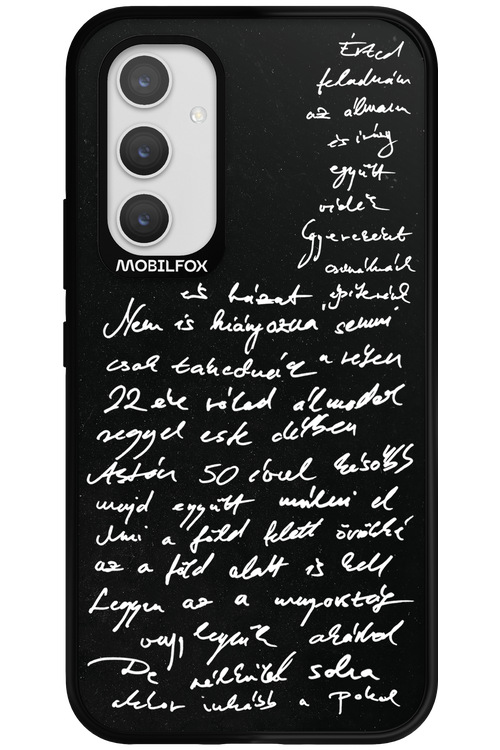 Érted
feladnám
az álmaim
és irány
együtt
vidék
Gyerekeket
csinálnánk
MOBILFOX
és házat építenénk
Nem is hiányozna semmi
csak takednák a réten
22 éve rólad álmodok
reggel este délben
Aztán 50 évvel később
majd együtt múlni el
Ami a föld felett örökké
az a föld alatt is kell
Legyen az a mennyország
vagy legyünk akárhol
De nélküled soha
akkor inkább a pokol